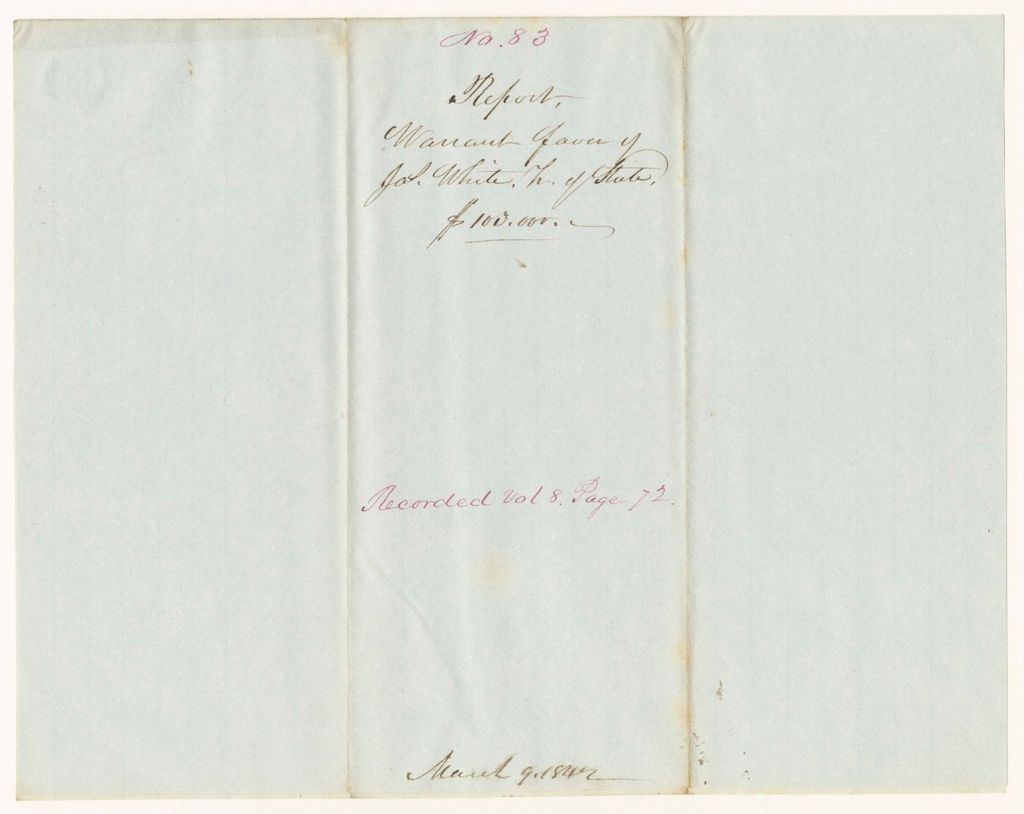 No. 83
Report,
Warrant favor of
Jas. White, Tr. of State,
$103.000.
Recorded Vol 8. Page 72.
March 9. 1842